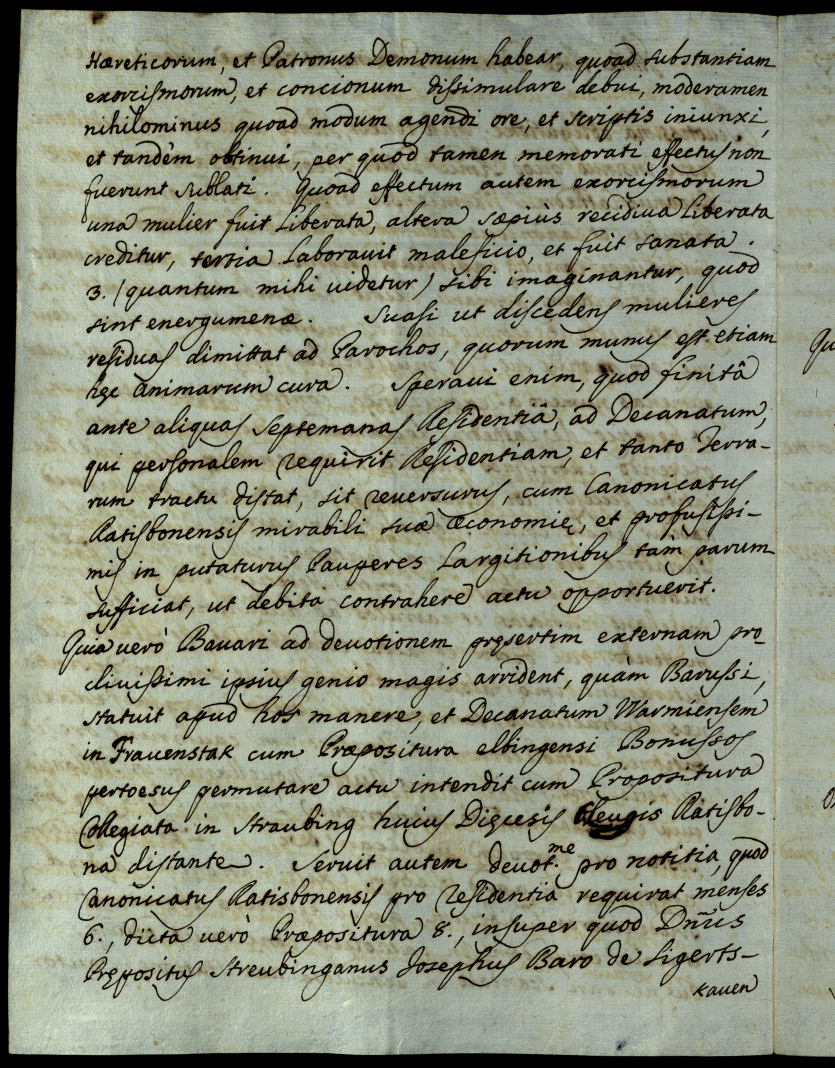 Hæreticorum, et Patronus Demonum habear, quoad substantiam
exorcismorum, et concionum dissimulare debui, moderamen
nihilominus quoad modum agendi ore, et scriptis iniunxi,
et tandem obtinui, per quod tamen memorati effectus non
fuerunt sublati. Quoad effectum autem exorcismorum
una mulier fuit Liberata, altera sæpiùs recidiva Liberata
creditur, tertia Laboravit maleficio, et fuit sanata.
3. (quantum mihi videtur) sibi imaginantur, quod
sint energumenæ. Suasi ut discedens mulieres
residuas dimittat ad Parochos, quorum munus est etiam
hęc animarum cura. Speravi enim, quod finitâ
ante aliquas septemanas Residentiâ, ad Decanatum,
qui personalem requirit Residentiam, et tanto Terra-
rum tractu distat, sit reversurus, cum Canonicatus
Ratisbonensis mirabili suæ œconomię, et profusissi-
mis in putaturus Pauperes Largitionibus tàm parum
sufficiat, ut debita contrahere actu opportuerit.
Quia verò Bavari ad devotionem pręsertim externam pro-
clivissimi ipsius genio magis arrident, quàm Barussi,
statuit apud hos manere, et Decanatum Warmiensem
in Frauenstak cum Præpositura elbingensi Bonussos
pertoesus permutare actu intendit cum Propositura
Collegiata in Straubing huius Dięcesis Ratisbo-
na distante. Servit autem devot.me pro notitia, quod
Canonicatus Ratisbonensis pro residentia requirat menses
6., dicta verò Præpositura 8., insuper quod Dñus
Prępositus Streubinganus Josephus Baro de Sigerts-
kauen